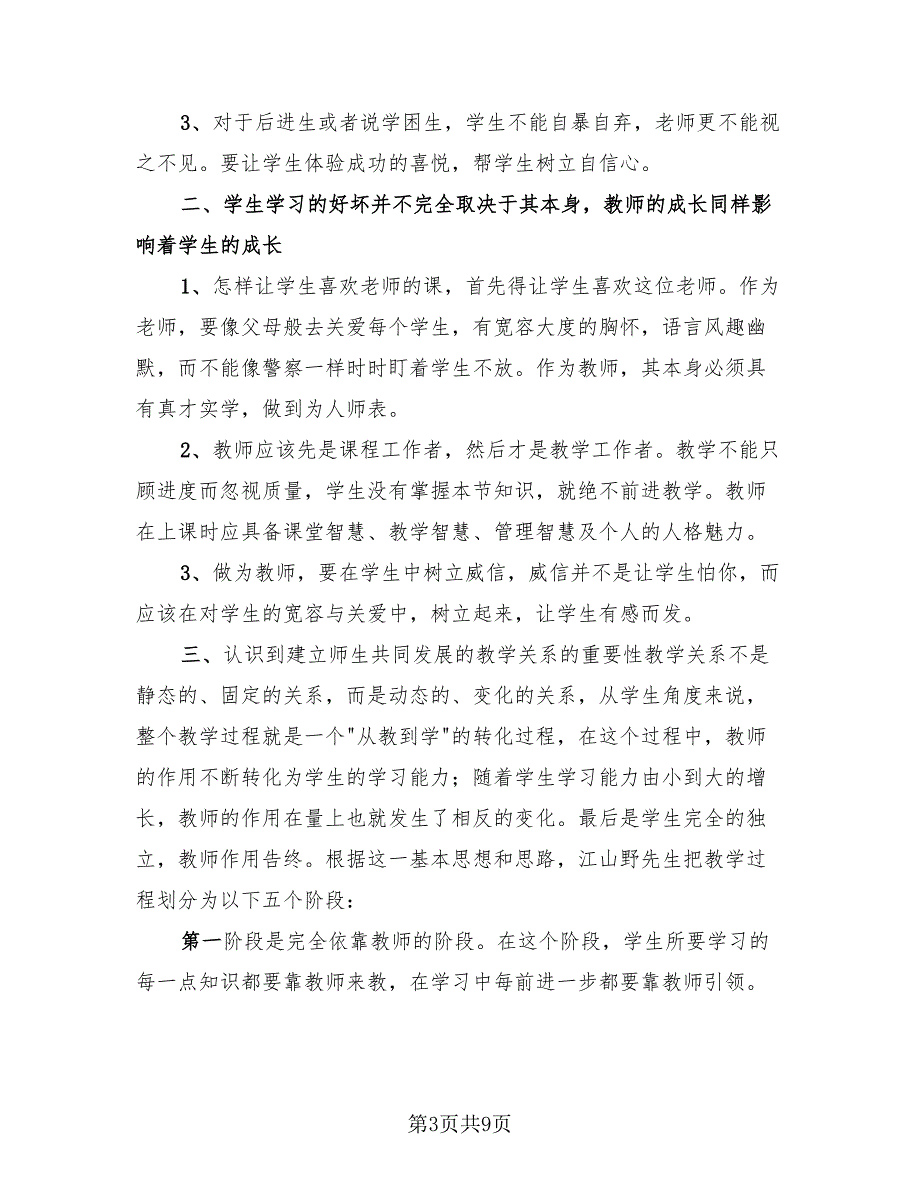 3、对于后进生或者说学困生，学生不能自暴自弃，老师更不能视
之不见。要让学生体验成功的喜悦，帮学生树立自信心。
二、学生学习的好坏并不完全取决于其本身，教师的成长同样影
响着学生的成长
1、怎样让学生喜欢老师的课，首先得让学生喜欢这位老师。作为
老师，要像父母般去关爱每个学生，有宽容大度的胸怀，语言风趣幽
默，而不能像警察一样时时盯着学生不放。作为教师，其本身必须具
有真才实学，做到为人师表。
2、教师应该先是课程工作者，然后才是教学工作者。教学不能只
顾进度而忽视质量，学生没有掌握本节知识，就绝不前进教学。教师
在上课时应具备课堂智慧、教学智慧、管理智慧及个人的人格魅力。
3、做为教师，要在学生中树立威信，威信并不是让学生怕你，而
应该在对学生的宽容与关爱中，树立起来，让学生有感而发。
三、认识到建立师生共同发展的教学关系的重要性教学关系不是
静态的、固定的关系，而是动态的、变化的关系，从学生角度来说，
整个教学过程就是一个"从教到学"的转化过程，在这个过程中，教师
的作用不断转化为学生的学习能力；随着学生学习能力由小到大的增
长，教师的作用在量上也就发生了相反的变化。最后是学生完全的独
立，教师作用告终。根据这一基本思想和思路，江山野先生把教学过
程划分为以下五个阶段：
第一阶段是完全依靠教师的阶段。在这个阶段，学生所要学习的
每一点知识都要靠教师来教，在学习中每前进一步都要靠教师引领。
第3页共9页